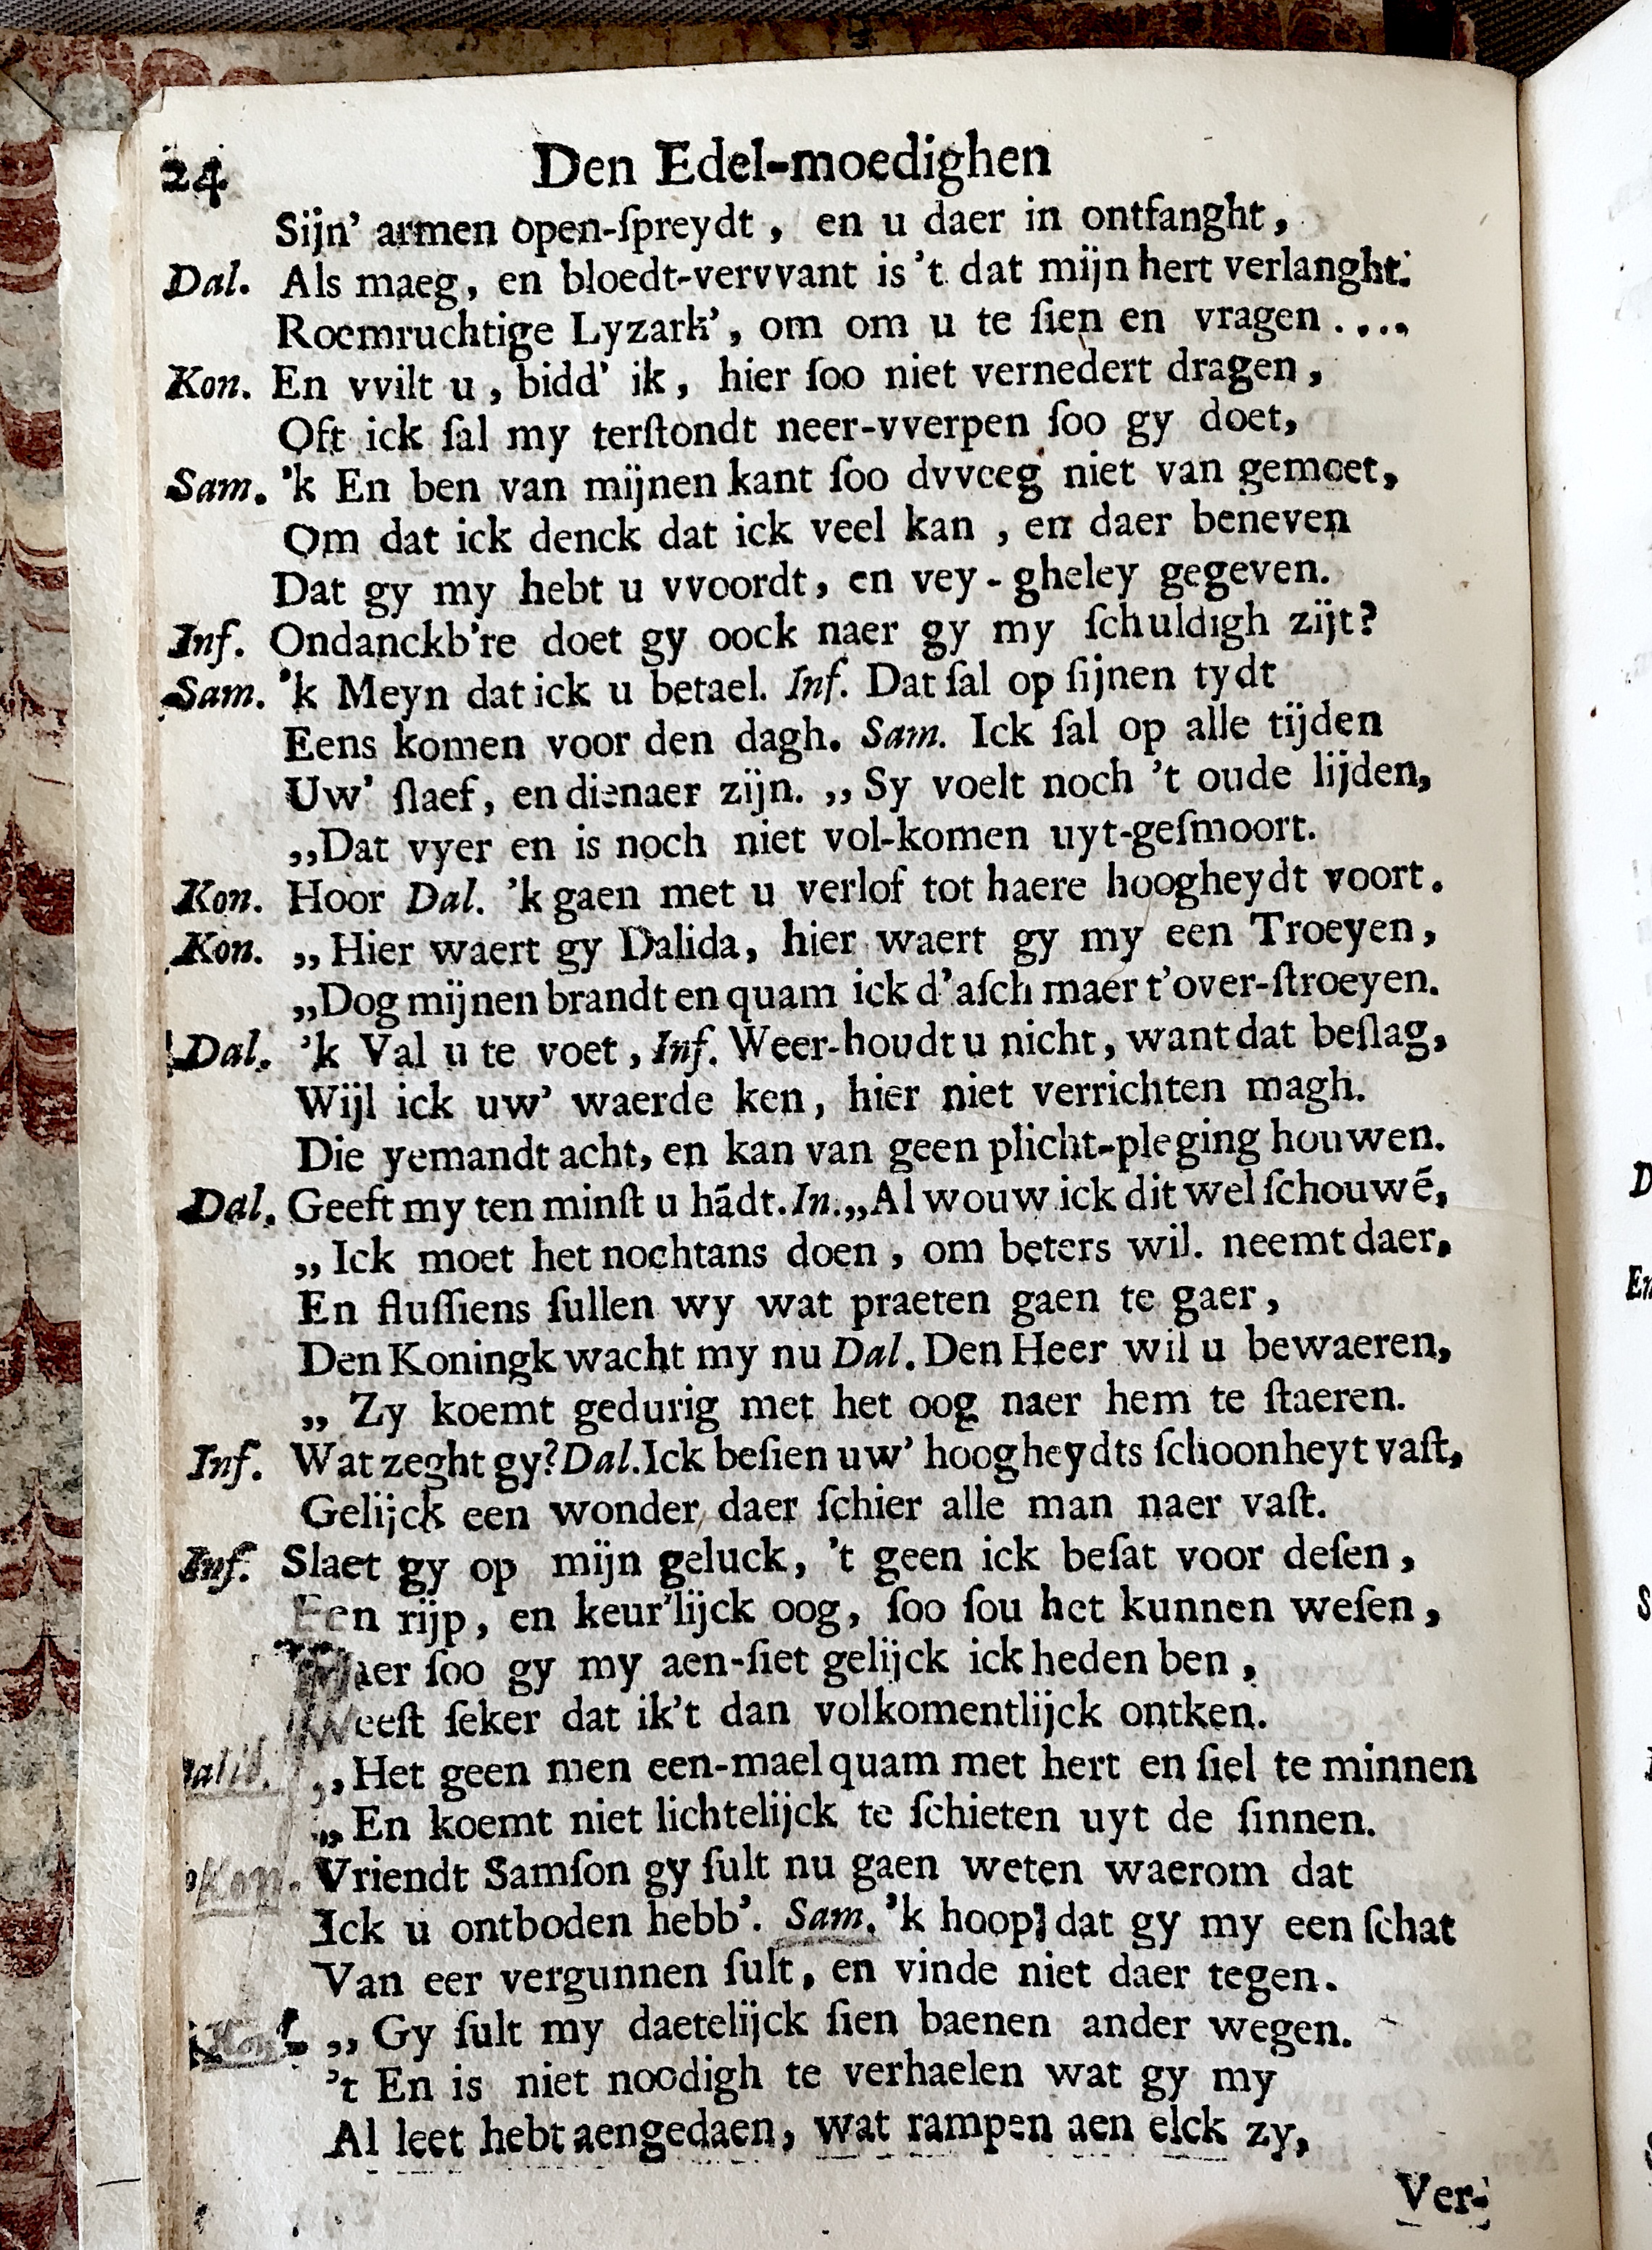 24 Den Edel-moedighen
Sijn' armen open-ſpreydt, en u daer in ontfanght,
Dal. Als maeg, en bloedt-vervvant is 't dat mijn hert verlanght.
Roemruchtige Lyzark', om om u te ſien en vragen ....
Kon. En vvilt u, bidd' ik, hier ſoo niet vernedert dragen,
Oft ick ſal my terſtondt neer-vverpen ſoo gy doet,
Sam. 'k En ben van mijnen kant ſoo dvveeg niet van gemoet,
Om dat ick denck dat ick veel kan, en daer beneven
Dat gy my hebt u vvoordt, en vey-gheley gegeven.
Inf. Ondanckb're doet gy oock naer gy my ſchuldigh zijt?
Sam. 'k Meyn dat ick u betael. Inf. Dat ſal op ſijnen tydt
Eens komen voor den dagh. Sam. Ick ſal op alle tijden
Uw' ſlaef, en dienaer zijn. ,, Sy voelt noch 't oude lijden,
,,Dat vyer en is noch niet vol-komen uyt-geſmoort.
Kon. Hoor Dal. 'k gaen met u verlof tot haere hoogheydt voort.
Kon. ,, Hier waert gy Dalida, hier waert gy my een Troeyen,
,,Dog mijnen brandt en quam ick d'aſch maer t'over-ſtroeyen.
Dal. 'k Val u te voet, Inf. Weer-houdt u nicht, want dat beſlag,
Wijl ick uw' waerde ken, hier niet verrichten magh.
Die yemandt acht, en kan van geen plicht-pleging houwen.
Dal. Geeft my ten minſt u hādt. In.,,Al wouw ick dit wel ſchouwē,
,, Ick moet het nochtans doen, om beters wil. neemt daer,
En fluſſiens ſullen wy wat praeten gaen te gaer,
Den Koningk wacht my nu Dal. Den Heer wil u bewaeren,
,, Zy koemt gedurig met het oog naer hem te ſtaeren.
Inf. Wat zeght gy? Dal. Ick beſien uw' hoogheydts ſchoonheyt vaſt,
Gelijck een wonder, daer ſchier alle man naer vaſt.
Inf. Slaet gy op mijn geluck, 't geen ick beſat voor deſen,
Een rijp, en keur'lijck oog, ſoo ſou het kunnen weſen,
Maer ſoo gy my aen-ſiet gelijck ick heden ben,
Weeſt ſeker dat ik't dan volkomentlijck ontken.
,,Het geen men een-mael quam met hert en ſiel te minnen
,,En koemt niet lichtelijck te ſchieten uyt de ſinnen.
Kon. Vriendt Samſon gy ſult nu gaen weten waerom dat
Ick u ontboden hebb'. Sam. 'k hoop dat gy my een ſchat
Van eer vergunnen ſult, en vinde niet daer tegen.
Kon. ,, Gy ſult my daetelijck ſien baenen ander wegen.
't En is niet noodigh te verhaelen wat gy my
Al leet hebt aengedaen, wat rampen aen elck zy,
Ver-